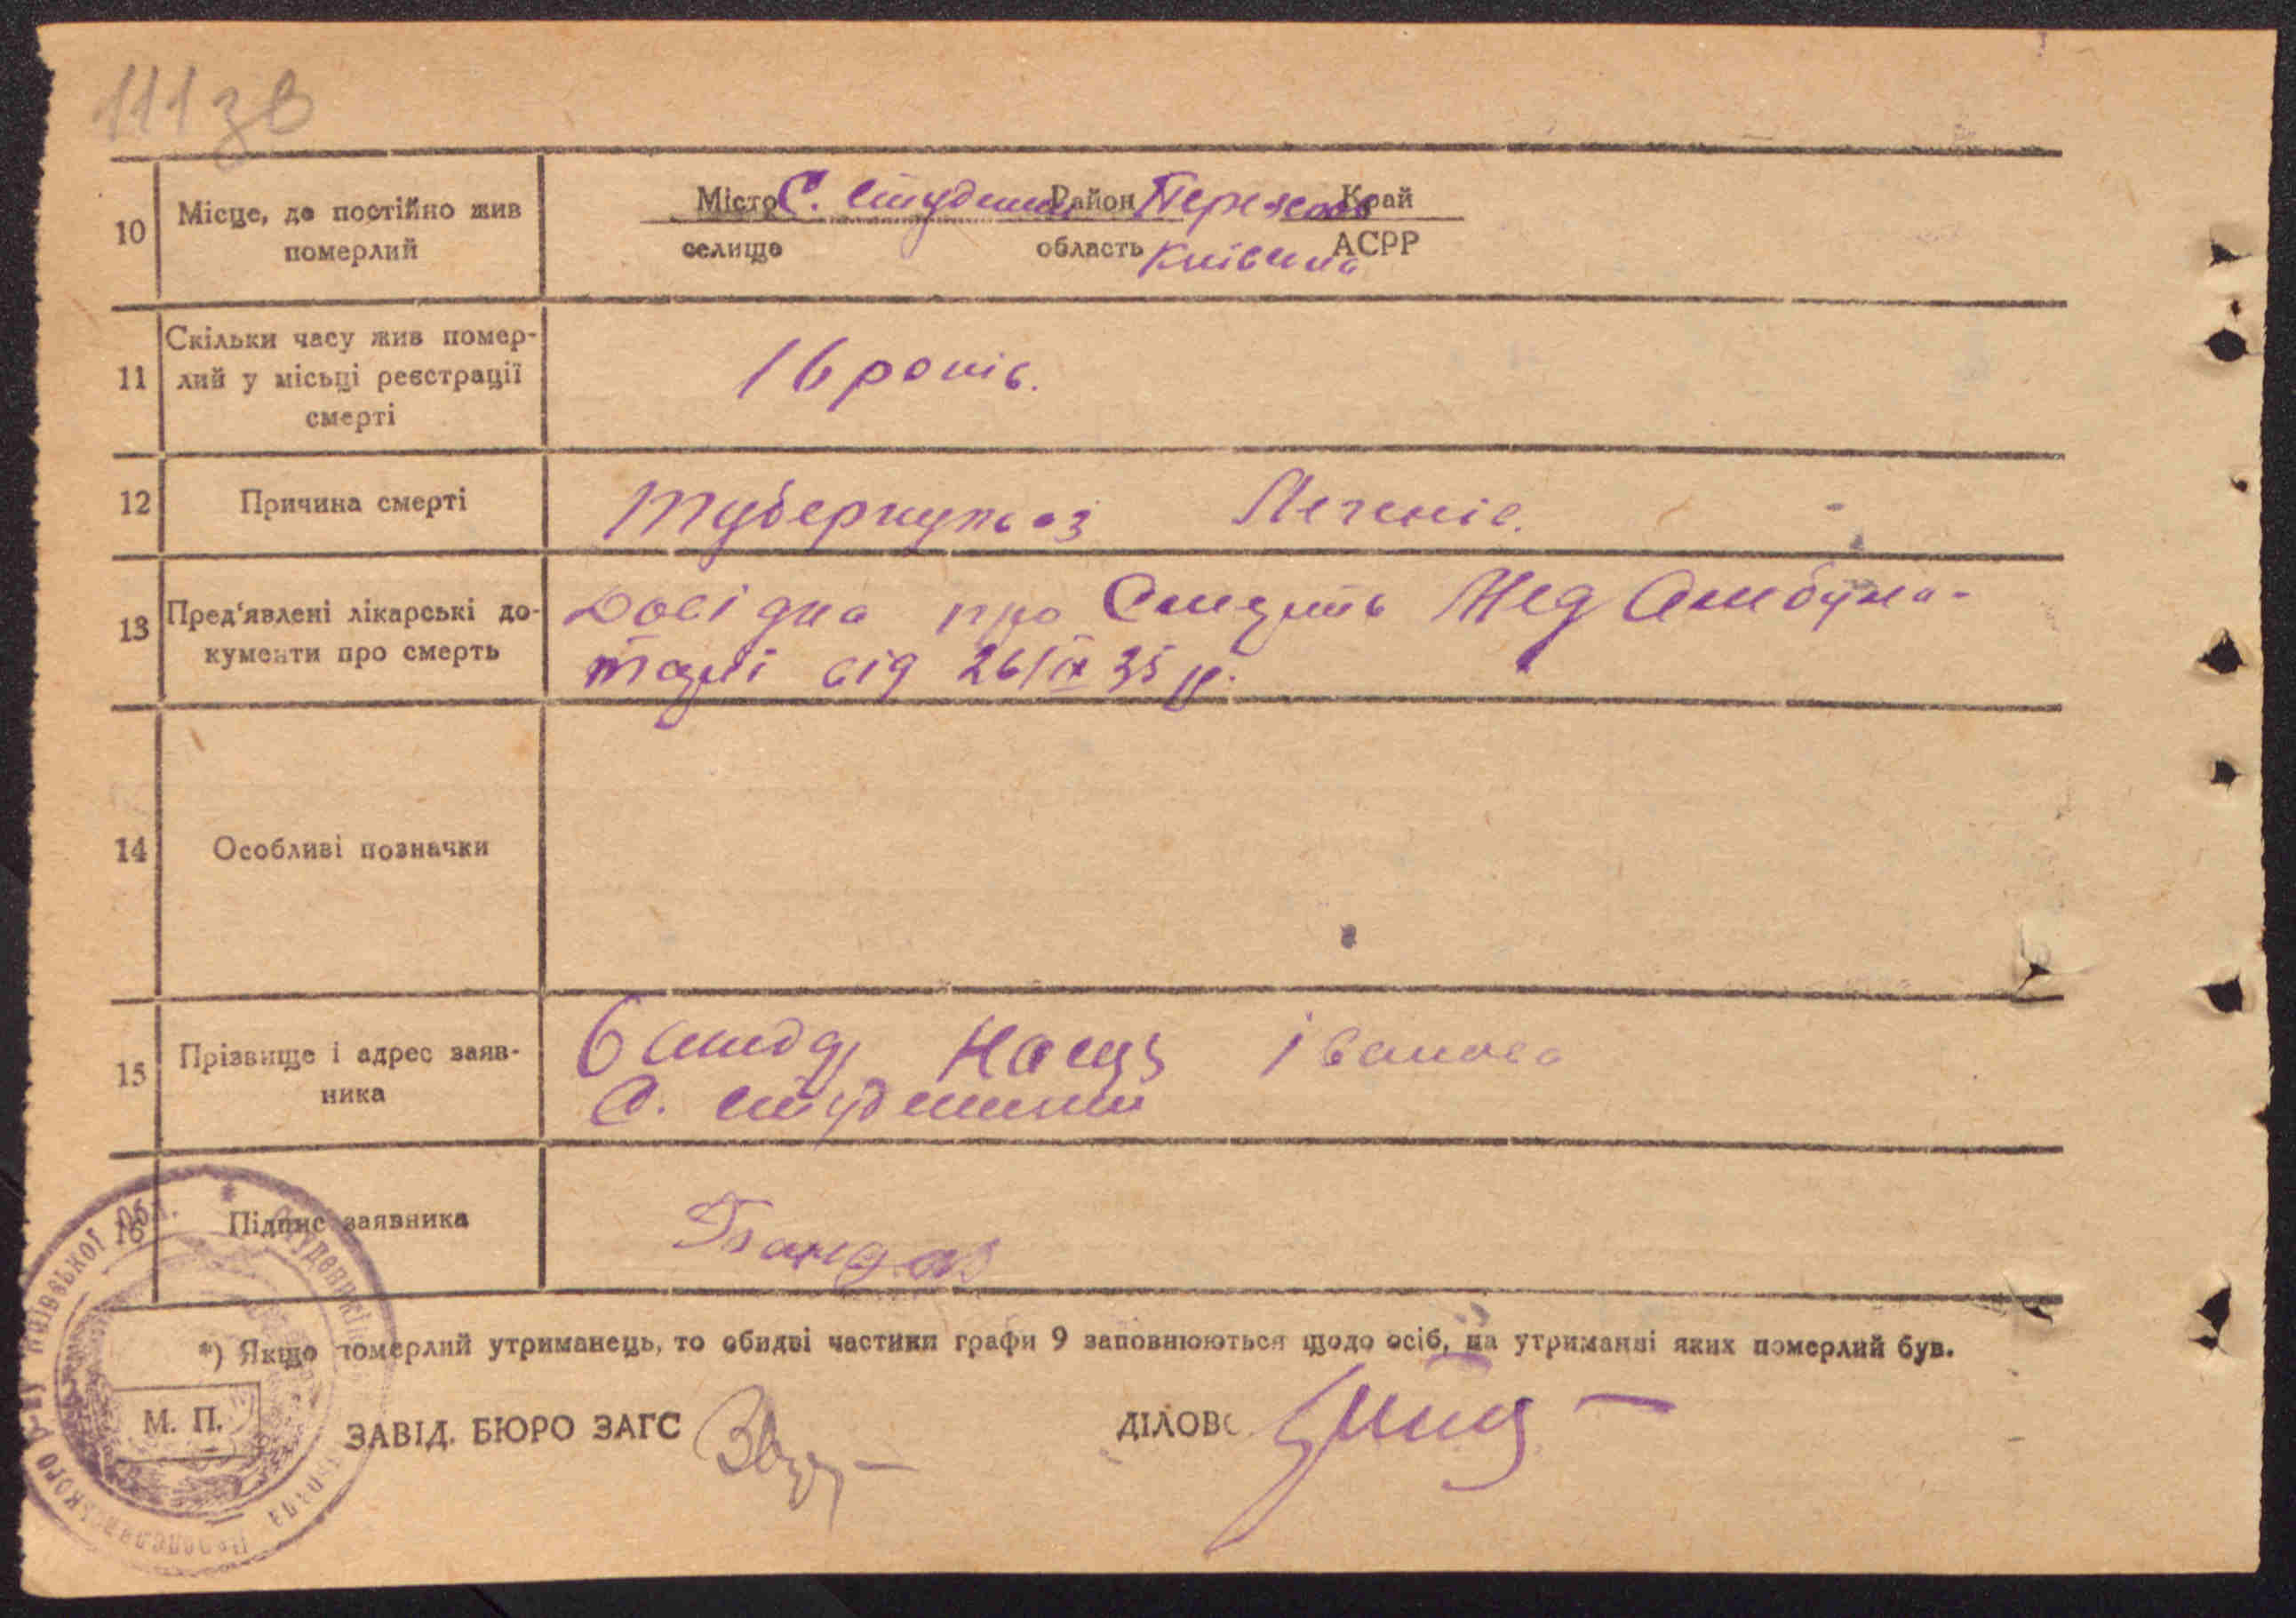 111 зв
10 Місце, де постійно жив померлий
Місто С. Студеники Район Переяслав Край
селище область Київська АСРР
11 Скільки часу жив помер-
лий у місьці реєстрації
смерті
16 років.
12 Причина смерті
Туберкульоз Легенів.
13 Пред'явлені лікарські до-
кументи про смерть
Довідка про Смерть Мед Амбула-
торії від 26/IX 35 р.
14 Особливі позначки
15 Прізвище і адрес заяв-
ника
Іванова
С. Студеники
16 Підпис заявника
*) Якщо померлий утриманець, то обидві частини графи 9 заповнюються щодо осіб, на утриманні яких померлий був.
М. П.
ЗАВІД. БЮРО ЗАГС
ДІЛОВ